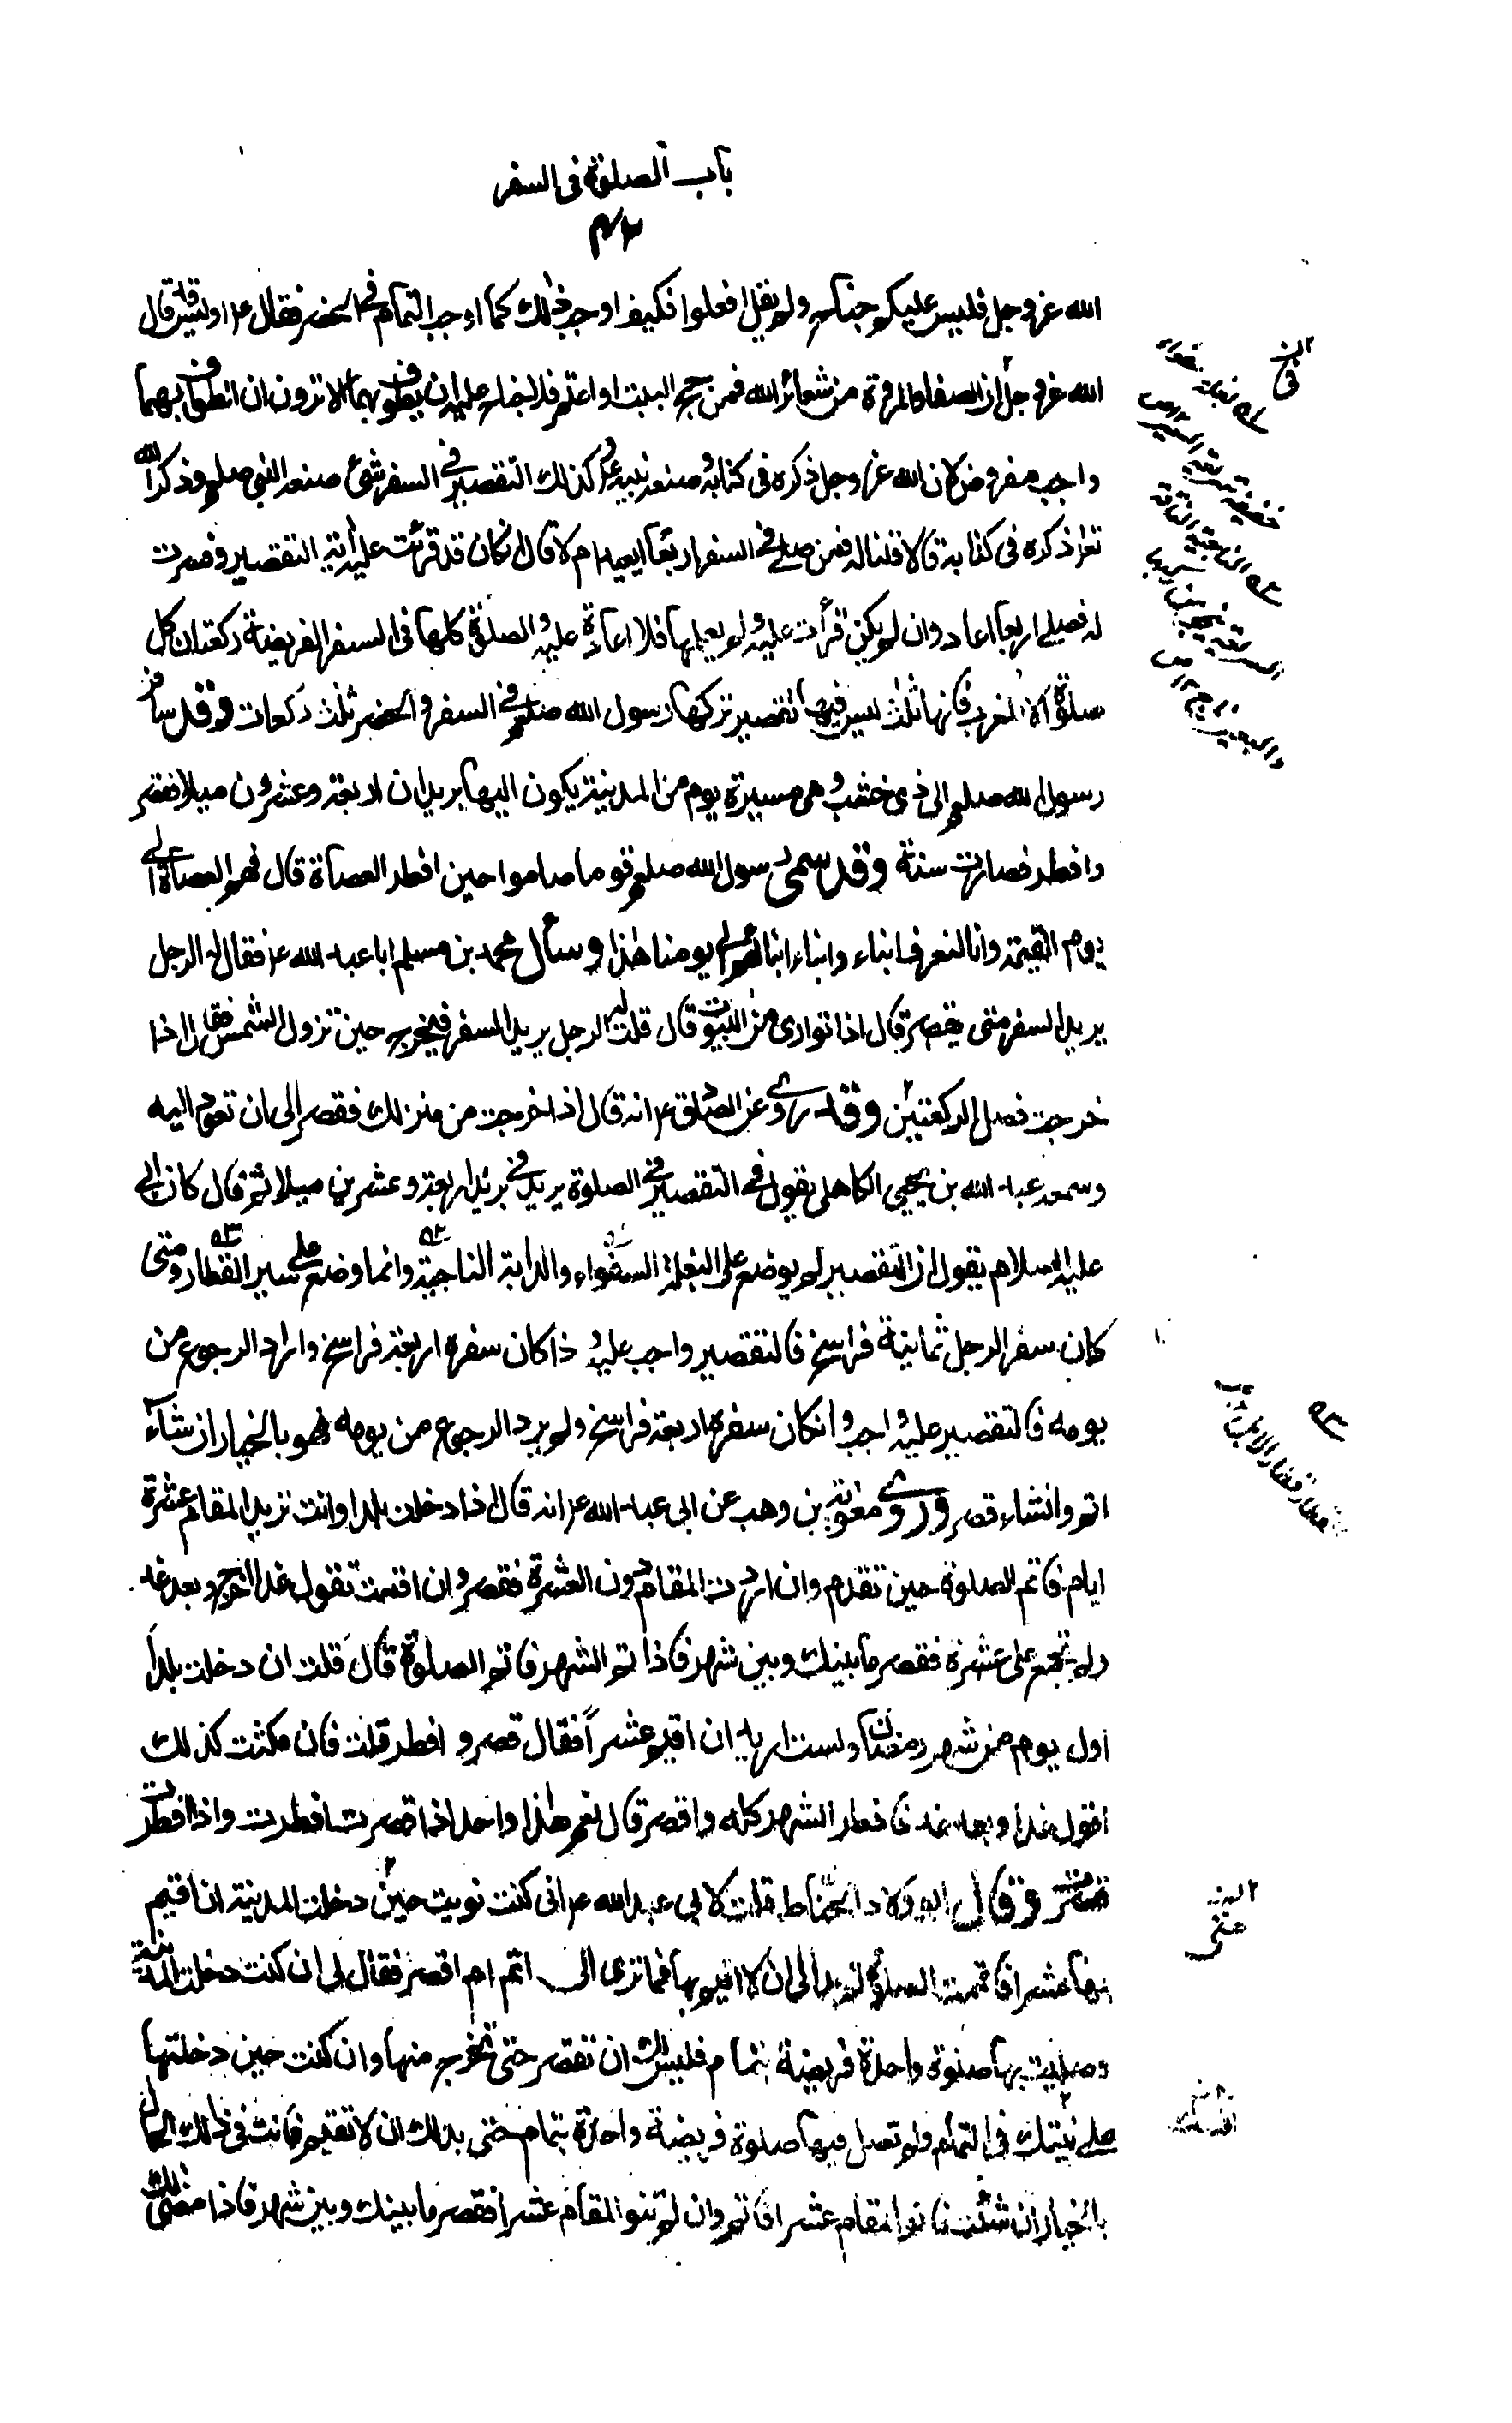 باب الصلوة في السفر
الله عز وجل فليس عليكم جناح ولم يقل افعلوا فكيف اوجب ذلك كما اوجب التمام في الحضر فقال ع اوليس قد قال
الله عز وجل ان الصفا والمروة من شعائر الله فمن حج البيت او اعتمر فلا جناح عليه ان يطوف بهما الا ترون ان الطواف بهما
واجب مفروض لان الله عز وجل ذكره في كتابه وصنعه نبيه ع كذلك التقصير في السفر شئ صنعه النبي صلعم وذكر الله
تعا ذكره في كتابه قالا قلنا له فمن صلى في السفر اربعا ايعيد ام لا قال ان كان قد قرئت عليه آية التقصير وفسرت
له فصلى اربعا اعاد وان لم يكن قرأت عليه ولم يعلمها فلا اعادة عليه والصلوة كلها في السفر الفريضة ركعتان كل
صلوة الا المغرب فانها ثلث ليس فيها تقصير تركها رسول الله صلعم في السفر والحضر ثلث ركعات وقد سافر
رسول الله صلعم الى ذى خشب وهي مسيرة يوم من المدينة يكون اليها بريدان اربعة وعشرون ميلا فقصر
وافطر فصارت سنة وقد سمى رسول الله صلعم قوما صاموا حين افطر العصاة قال فهم العصاة الى
يوم القيمة وانا لنعرف ابناءهم وابناء ابنائهم الى يومنا هذا وسأل محمد بن مسلم ابا عبد الله ع فقال له الرجل
يريد السفر متى يقصر قال اذا توارى من البيوت قال قلت له الرجل يريد السفر فيخرج حين تزول الشمس فقال اذا
خرجت فصل الركعتين وقد روى عن الصادق ع انه قال اذا خرجت من منزلك فقصر الى ان تعود اليه
وسمعه عبد الله بن يحيى الكاهلى يقول في التقصير في الصلوة بريد في بريد اربعة وعشرين ميلا ثم قال كان ابي
عليه السلام يقول ان التقصير لم يوضع على البغلة السفواء والدابة الناجية وانما وضع على سير القطار ومتى
كان سفر الرجل ثمانية فراسخ فالتقصير واجب عليه واذا كان سفره اربعة فراسخ واراد الرجوع من
يومه فالتقصير عليه واجب وان كان سفره اربعة فراسخ ولم يرد الرجوع من يومه فهو بالخيار ان شاء
اتم وان شاء قصر وروى معوية بن وهب عن ابي عبد الله ع انه قال اذا دخلت بلدا وانت تريد المقام عشرة
ايام فاتم الصلوة حين تقدم وان اردت المقام دون العشرة فقصر وان اقمت تقول غدا اخرج وبعد غد
ولم تجمع على عشرة فقصر ما بينك وبين شهر فاذا تم الشهر فاتم الصلوة قال قلت ان دخلت بلدا
اول يوم من شهر رمضان ولست اريد ان اقيم عشرا فقال قصر وافطر قلت فان مكثت كذلك
اقول غدا وبعد غد فافطر الشهر كله واقصر قال نعم هذا واحد اذا قصرت افطرت واذا افطرت
قصرت وقال ابو ولاد الحناط قلت لابي عبد الله ع اني كنت نويت حين دخلت المدينة ان اقيم
بها عشرا فاتممت الصلوة ثم بدا لي ان لا اقيم بها فما ترى لي اتم ام اقصر فقال لي ان كنت دخلت المدينة
وصليت بها صلوة واحدة فريضة بتمام فليس لك ان تقصر حتى تخرج منها وان كنت حين دخلتها
على نيتك في التمام ولم تصل فيها صلوة فريضة واحدة بتمام حتى بدا لك ان لا تقيم فانت في ذلك الحال
بالخيار ان شئت فانو المقام عشرا فاتم وان لم تنو المقام عشرا فقصر ما بينك وبين شهر فاذا مضى لك